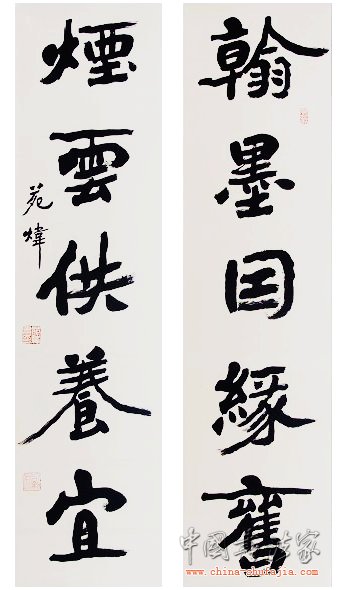 翰墨因緣舊
煙雲供養宜
苑煒
中国书法家
www.china-shufajia.com